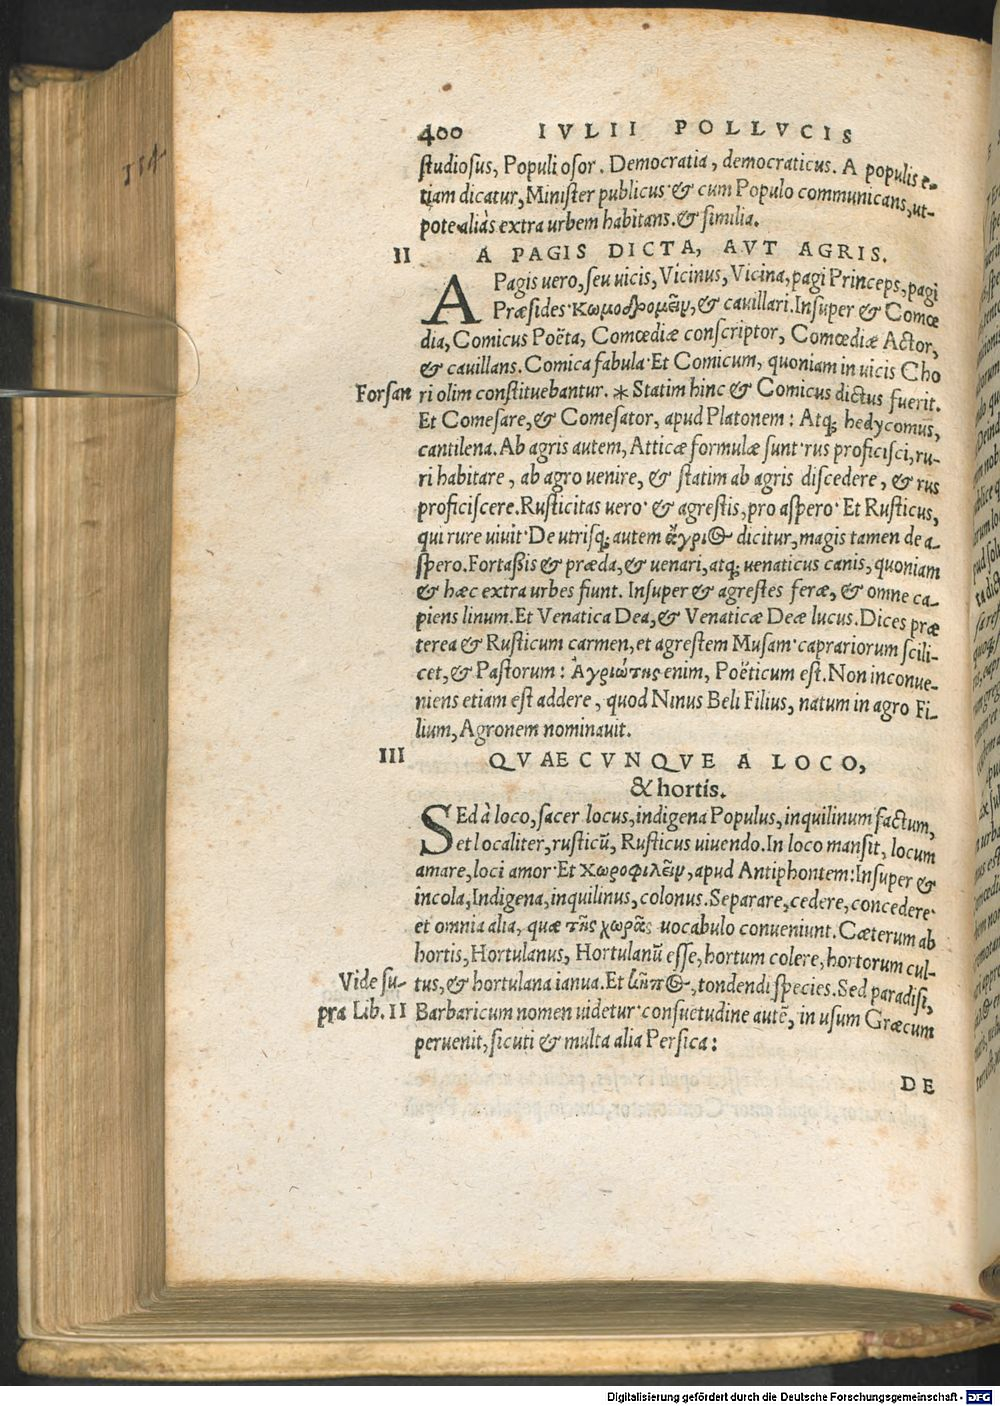 114
400 IVLII POLLVCIS
studiosus, Populi osor. Democratia, democraticus. A populis e-
tiam dicatur, Minister publicus· & cum Populo communicans, ut-
pote aliàs extra urbem habitans. & similia.
II A PAGIS DICTA, AVT AGRIS.
A Pagis uero, seu uicis, Vicinus, Vicina, pagi Princeps, pagi
Præsides· κωμοδρομεῖν, & cauillari. Insuper & Comœ
dia, Comicus Poëta, Comœdiæ conscriptor, Comœdiæ Actor,
& cauillans. Comica fabula· Et Comicum, quoniam in uicis Cho
Forsan ri olim constituebantur. * Statim hinc & Comicus dictus fuerit.
Et Comesare, & Comesator, apud Platonem: Atq; hedycomus,
cantilena. Ab agris autem, Atticæ formulæ sunt· rus proficisci, ru-
ri habitare, ab agro uenire, & statim ab agris discedere, & rus
proficiscere. Rusticitas uero· & agrestis, pro aspero· Et Rusticus,
qui rure uiuit· De utrisq; autem ἄγριος dicitur, magis tamen de a-
spero. Fortaßis & præda, & uenari, atq; uenaticus canis, quoniam
& hæc extra urbes fiunt. Insuper & agrestes feræ, & omne ca-
piens linum. Et Venatica Dea, & Venaticæ Deæ lucus. Dices præ
terea & Rusticum carmen, et agrestem Musam· caprariorum scili-
cet, & Pastorum: Ἀγριώτης enim, Poëticum est. Non inconue-
niens etiam est addere, quod Ninus Beli Filius, natum in agro Fi-
lium, Agronem nominauit.
III QVAECVNQVE A LOCO,
& hortis.
SEd à loco, sacer locus, indigena Populus, inquilinum factum,
et localiter, rusticũ, Rusticus uiuendo. In loco mansit, locum
amare, loci amor· Et χωροφιλεῖν, apud Antiphontem: Insuper &
incola, Indigena, inquilinus, colonus. Separare, cedere, concedere·
et omnia alia, quæ τῆς χωρᾶς uocabulo conueniunt. Cæterum ab
hortis, Hortulanus, Hortulanũ esse, hortum colere, hortorum cul-
Vide su- tus, & hortulana ianua. Et κῆπος, tondendi species. Sed paradisi,
pra Lib. II Barbaricum nomen uidetur· consuetudine autẽ, in usum Græcum
peruenit, sicuti & multa alia Persica:
DE
Digitalisierung gefördert durch die Deutsche Forschungsgemeinschaft - DFG